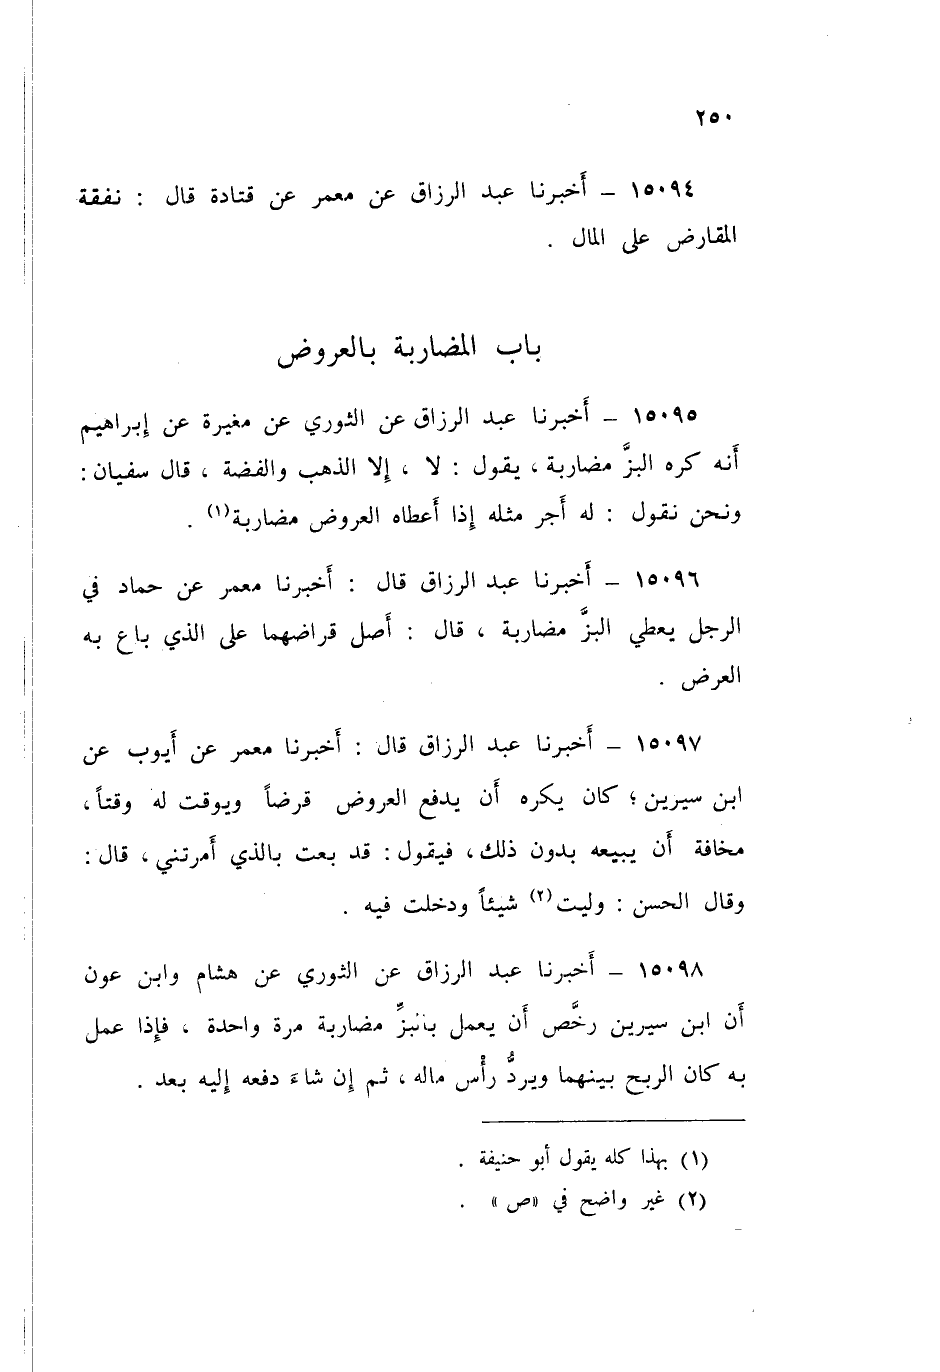 ٢٥٠
١٥٠٩٤ – أَخبرنا عبد الرزاق عن معمر عن قتادة قال : نفقة
المقارض على المال .
باب المضاربة بالعروض
١٥٠٩٥ – أَخبرنا عبد الرزاق عن الثوري عن مغيرة عن إبراهيم
أَنه كره البزَّ مضاربة ، يقول : لا ، إلا الذهب والفضة ، قال سفيان :
ونحن نقول : له أَجر مثله إذا أَعطاه العروض مضاربة(١) .
١٥٠٩٦ – أَخبرنا عبد الرزاق قال : أَخبرنا معمر عن حماد في
الرجل يعطي البزَّ مضاربة ، قال : أَصل قراضهما على الذي باع به
العرض .
١٥٠٩٧ – أَخبرنا عبد الرزاق قال : أَخبرنا معمر عن أَيوب عن
ابن سيرين ؛ كان يكره أَن يدفع العروض قرضاً ويوقت له وقتاً ،
مخافة أَن يبيعه بدون ذلك ، فيقول : قد بعت بالذي أَمرتني ، قال :
وقال الحسن : وليت(٢) شيئاً ودخلت فيه .
١٥٠٩٨ – أَخبرنا عبد الرزاق عن الثوري عن هشام وابن عون
أَن ابن سيرين رخَّص أَن يعمل بالبزِّ مضاربة مرة واحدة ، فإذا عمل
به كان الربح بينهما ويردُّ رأْس ماله ، ثم إن شاءَ دفعه إليه بعد .
(١) بهذا كله يقول أبو حنيفة .
(٢) غير واضح في «ص» .